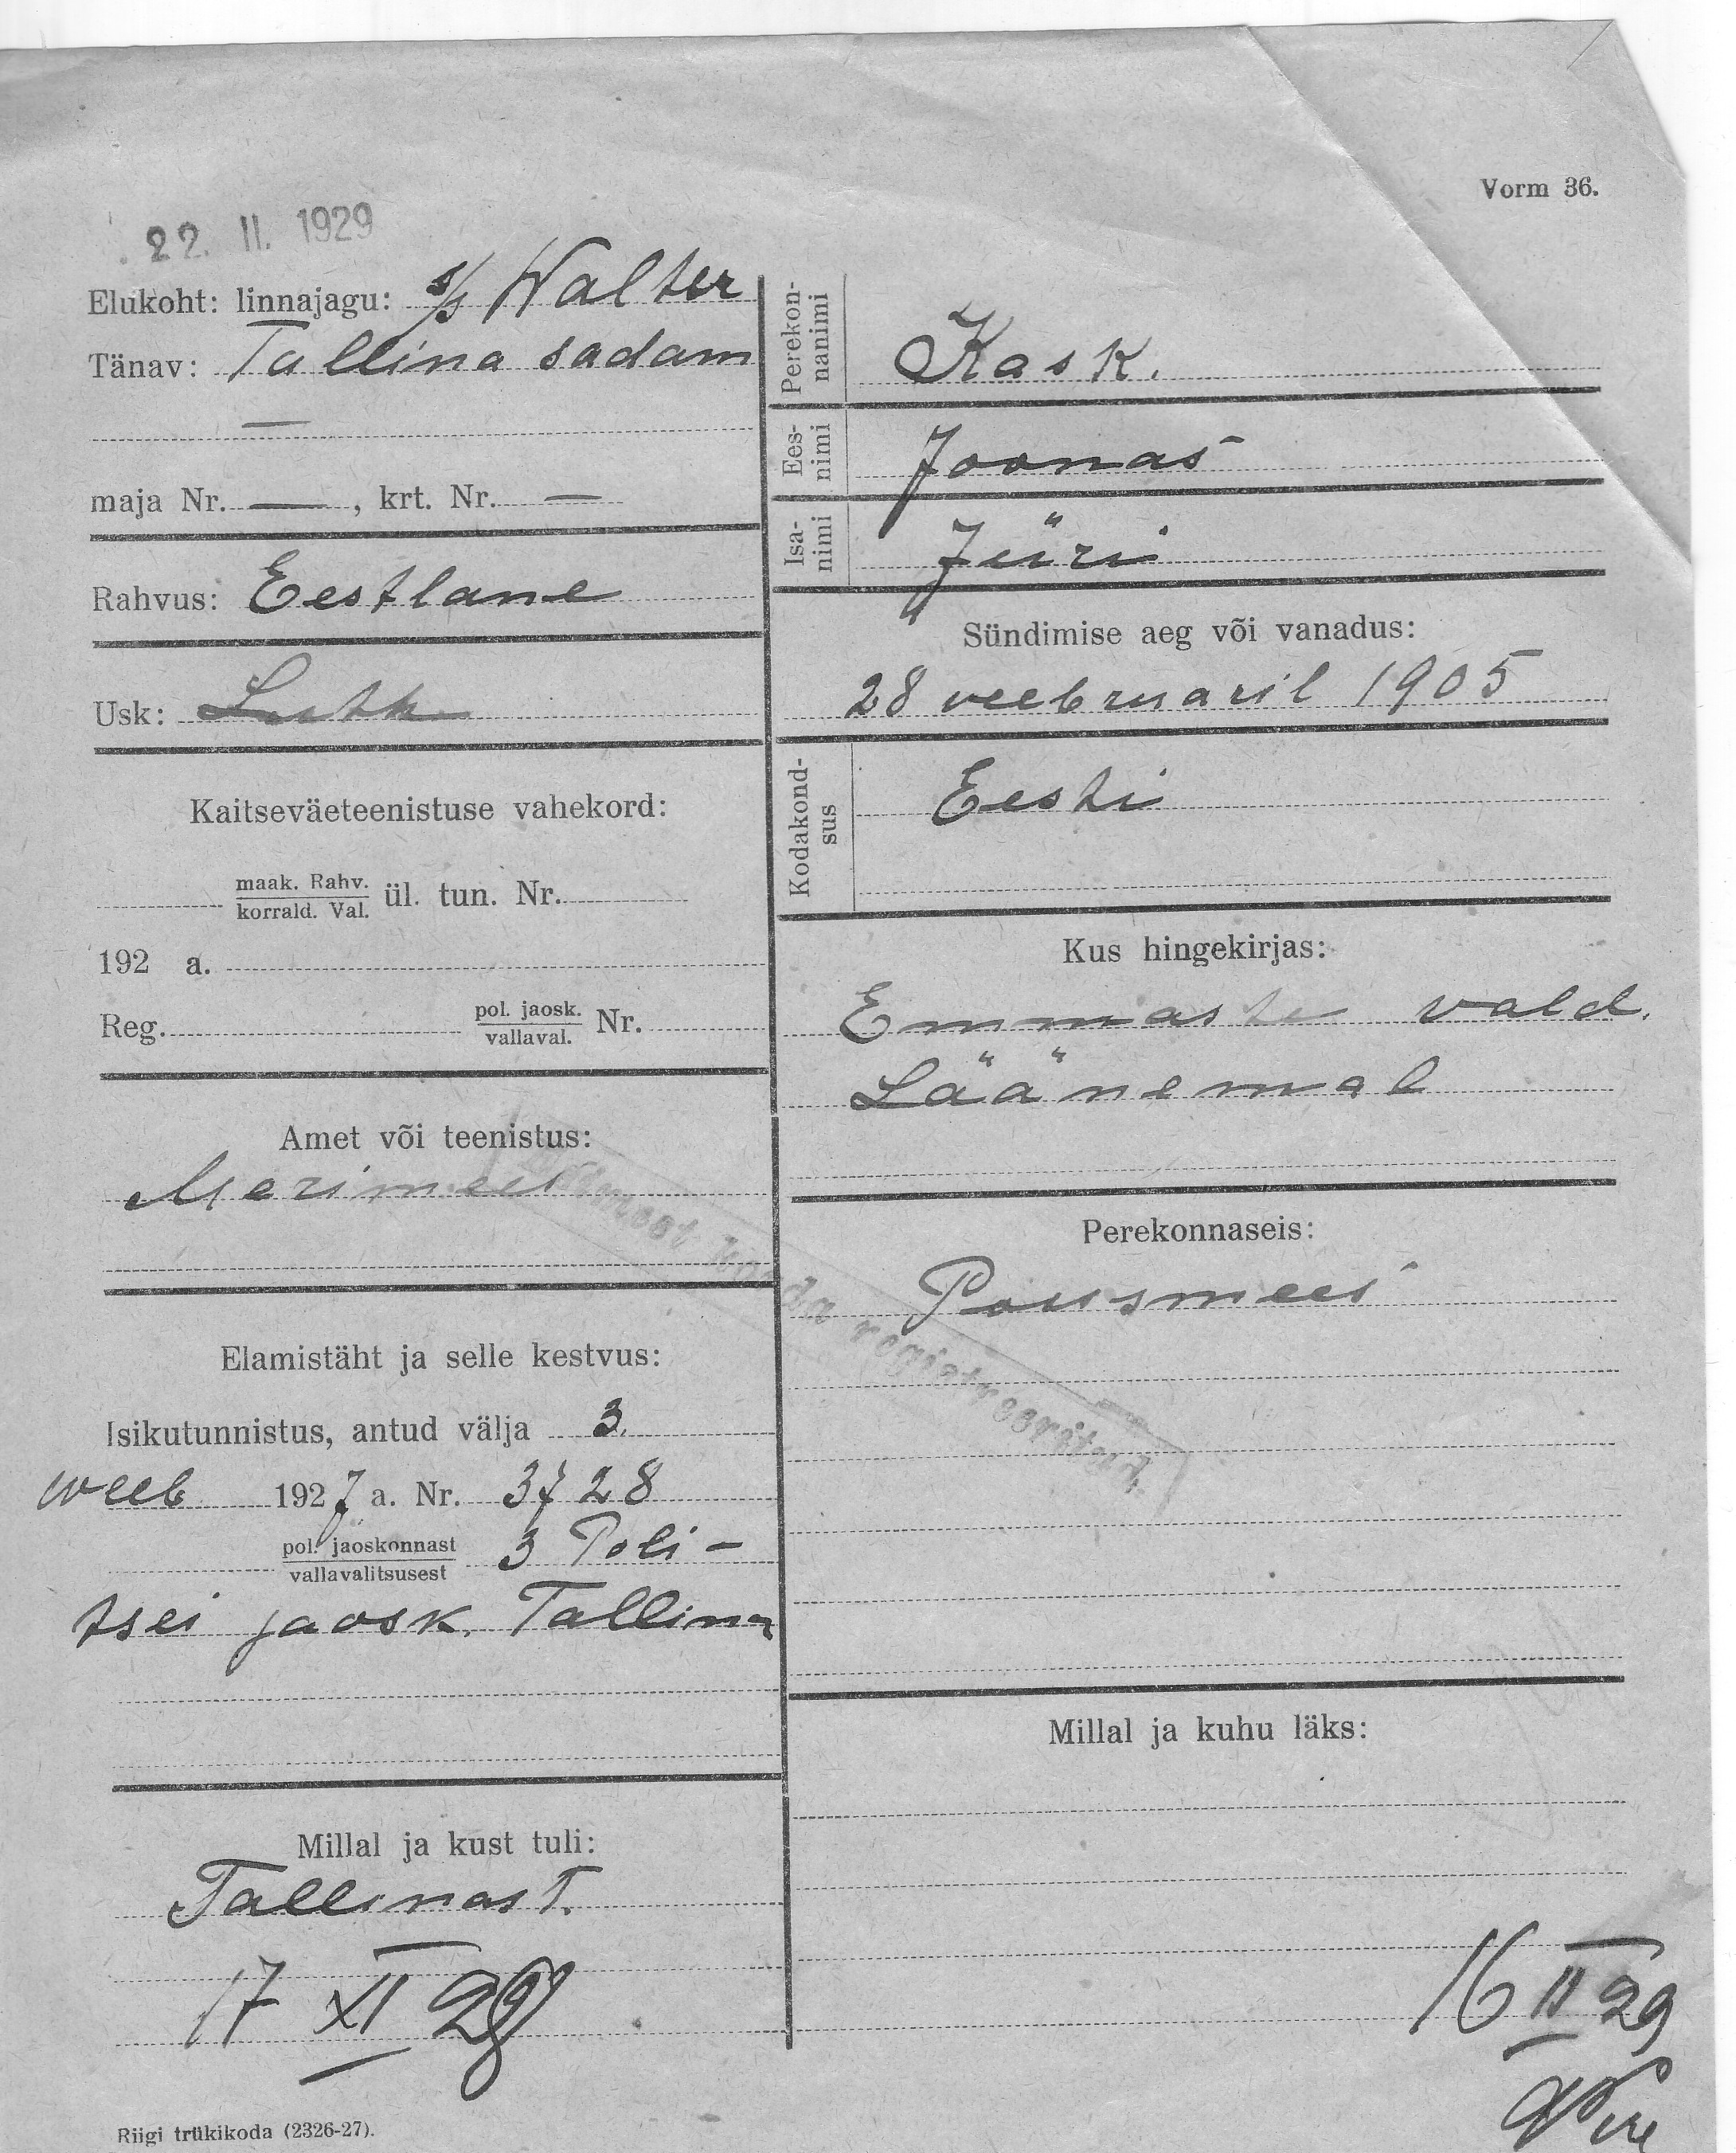 Vorm 36.
22. II. 1929
Elukoht: linnajagu: s/s Walter
Tänav: Tallina sadam
—
maja Nr. — , krt. Nr. —
Rahvus: Eestlane
Usk: Luth
Kaitseväeteenistuse vahekord:
maak. Rahv.
korrald. Val.
ül. tun. Nr.
192 a.
Reg. pol. jaosk. Nr.
vallaval.
Amet või teenistus:
Merimees
Elamistäht ja selle kestvus:
Isikutunnistus, antud välja 3.
weeb 1927 a. Nr. 3728
pol. jaoskonnast 3 Poli-
vallavalitsusest
tsei jaosk. Tallina
Millal ja kust tuli:
Tallinast.
17 XI 28
Riigi trükikoda (2326-27).
Perekon-
nanimi
Kask.
Ees-
nimi
Joonas
Isa-
nimi
Jüri
Sündimise aeg või vanadus:
28 veebruaril 1905
Kodakond-
sus
Eesti
Kus hingekirjas:
Emmaste vald.
Läänemal
Perekonnaseis:
Poissmees
registreeritud.
Millal ja kuhu läks:
16 II 29